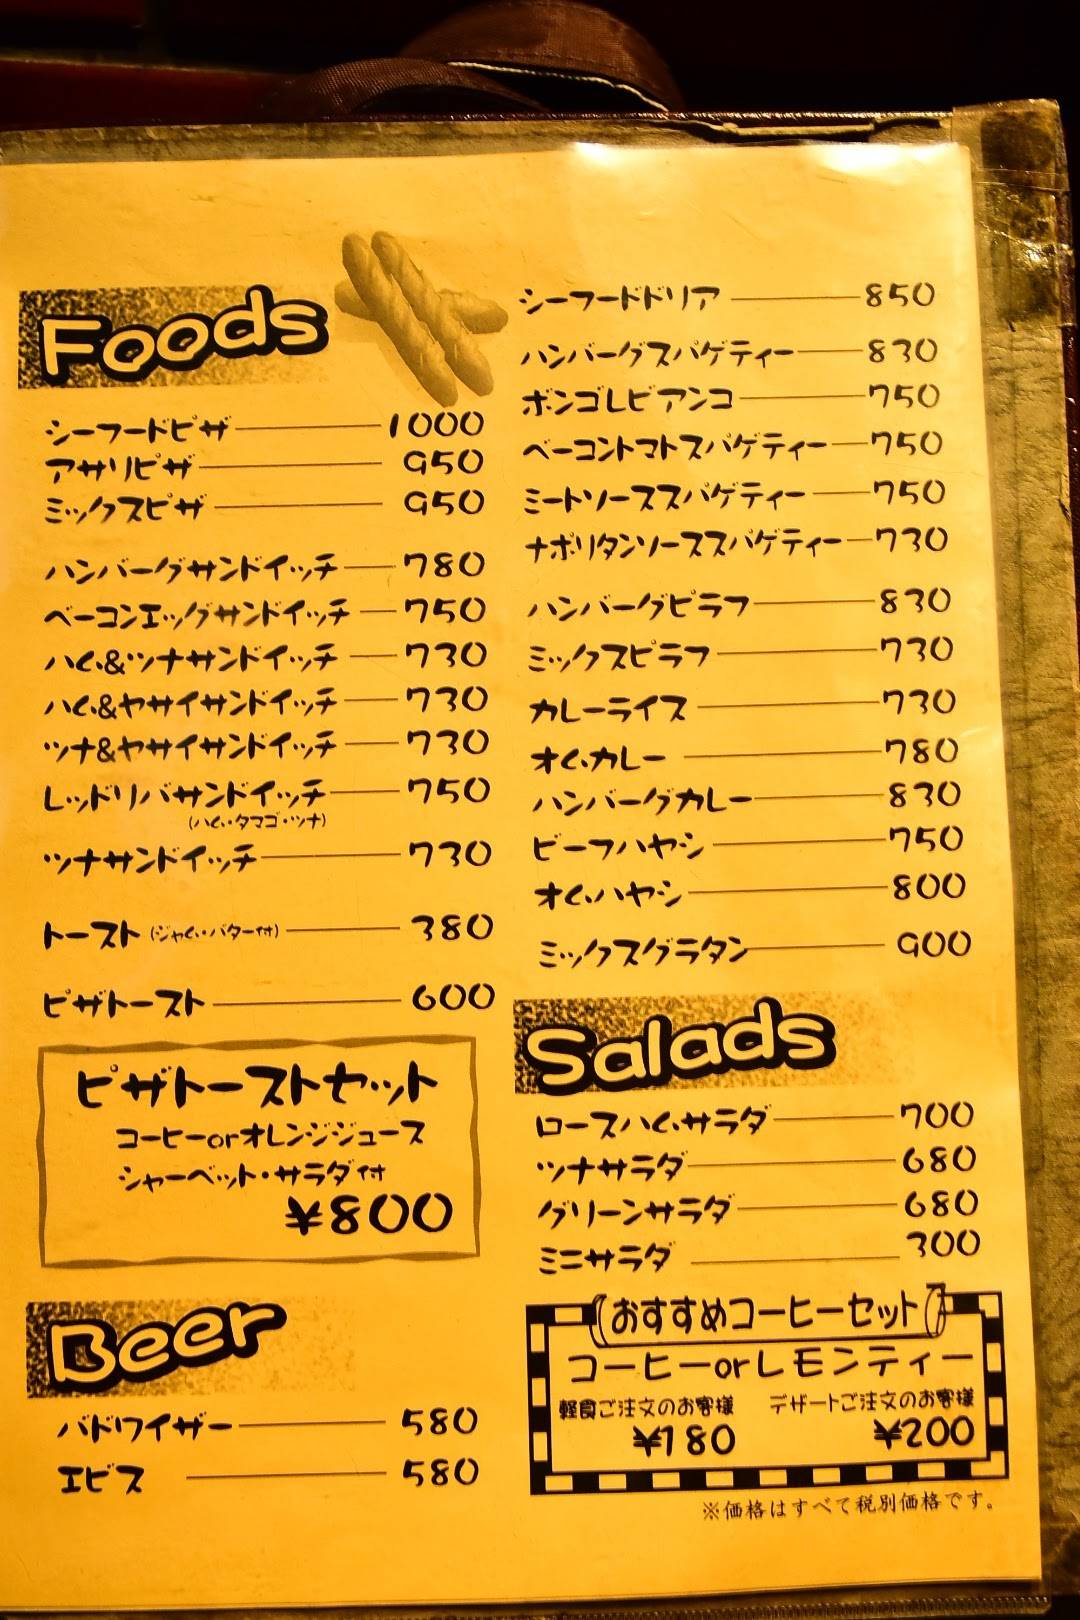 Foods
シーフードピザ 1000
アサリピザ 950
ミックスピザ 950
ハンバーグサンドイッチ 780
ベーコンエッグサンドイッチ 750
ハム&ツナサンドイッチ 730
ハム&ヤサイサンドイッチ 730
ツナ&ヤサイサンドイッチ 730
レッドリバサンドイッチ 750
(ハム・タマゴ・ツナ)
ツナサンドイッチ 730
トースト(ジャム・バター付) 380
ピザトースト 600
ピザトーストセット
コーヒーorオレンジジュース
シャーベット・サラダ付
¥800
Beer
バドワイザー 580
エビス 580
シーフードドリア 850
ハンバーグスパゲティー 830
ボンゴレビアンコ 750
ベーコントマトスパゲティー 750
ミートソーススパゲティー 750
ナポリタンソーススパゲティー 730
ハンバーグピラフ 830
ミックスピラフ 730
カレーライス 730
オムカレー 780
ハンバーグカレー 830
ビーフハヤシ 750
オムハヤシ 800
ミックスグラタン 900
Salads
ロースハムサラダ 700
ツナサラダ 680
グリーンサラダ 680
ミニサラダ 300
おすすめコーヒーセット
コーヒーorレモンティー
軽食ご注文のお客様 デザートご注文のお客様
¥180 ¥200
※価格はすべて税別価格です。